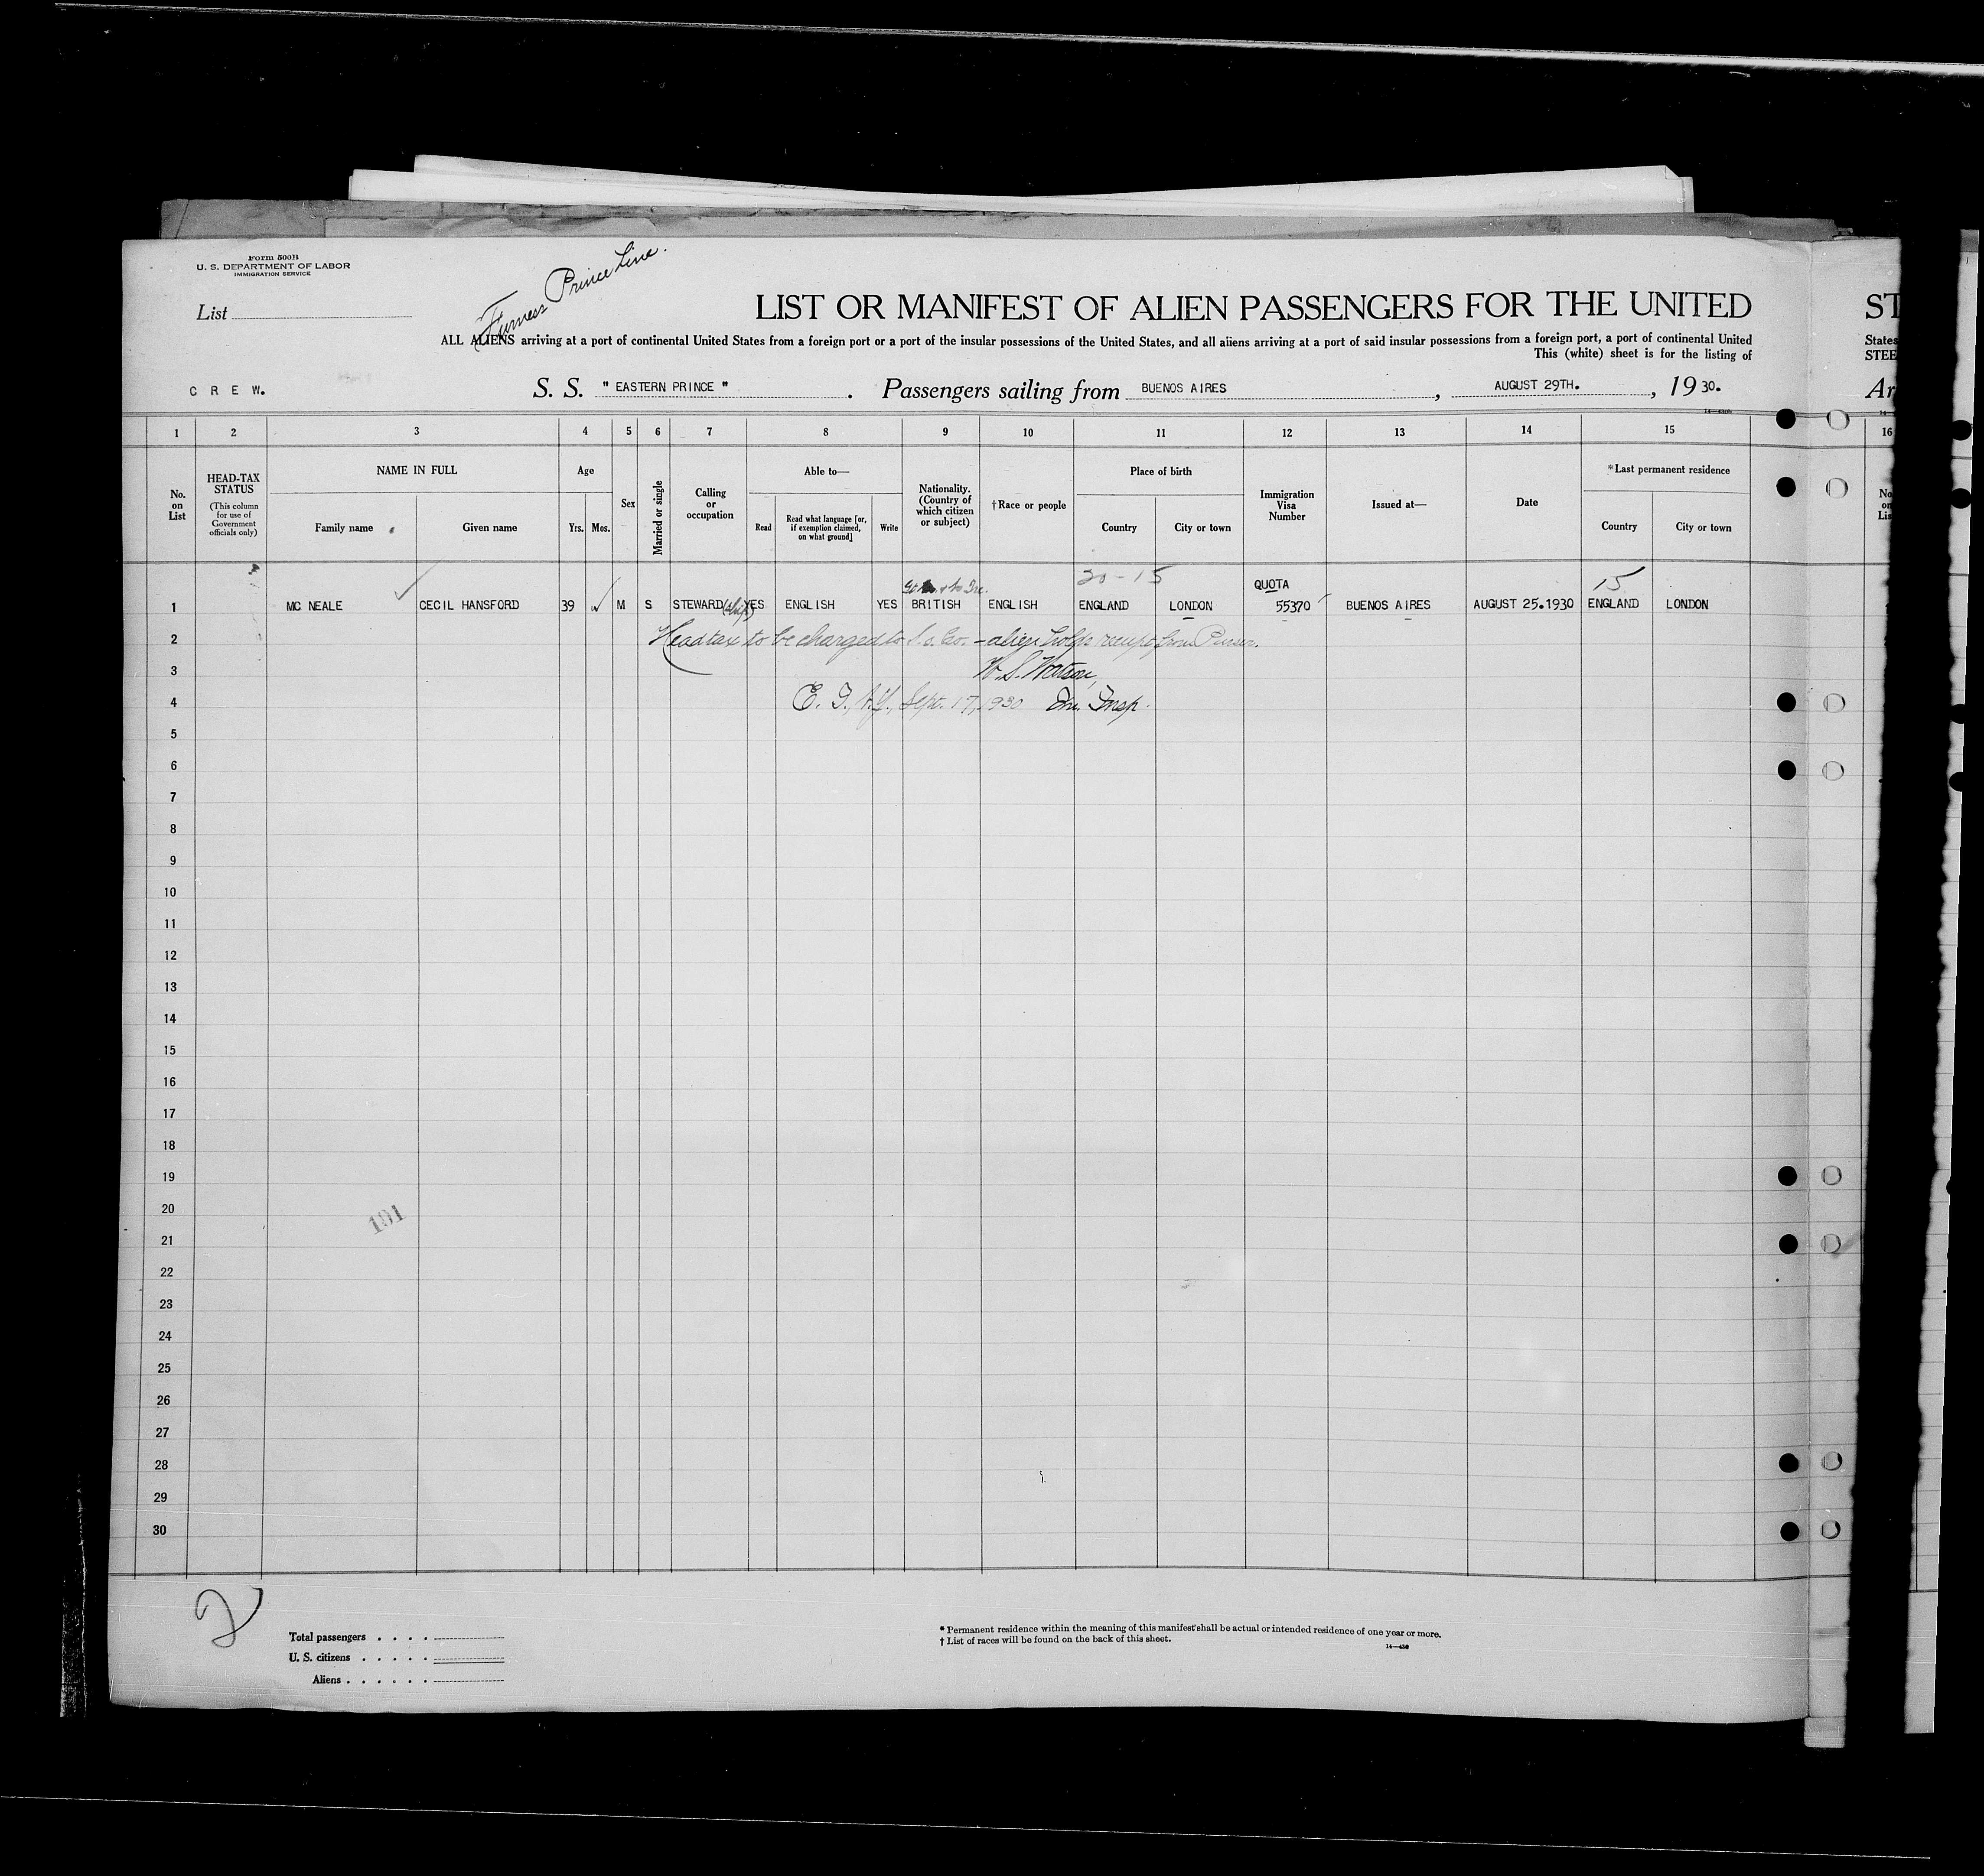 Form 500B
U. S. DEPARTMENT OF LABOR
IMMIGRATION SERVICE
List
Furness Prince Line.
LIST OR MANIFEST OF ALIEN PASSENGERS FOR THE UNITED
ST
ALL ALIENS arriving at a port of continental United States from a foreign port or a port of the insular possessions of the United States, and all aliens arriving at a port of said insular possessions from a foreign port, a port of continental United
States
This (white) sheet is for the listing of
STEE
C R E W. S. S. " EASTERN PRINCE ". Passengers sailing from BUENOS AIRES, AUGUST 29TH., 19 30.
Ar
1 2 3 4 5 6 7 8 9 10 11 12 13 14 15 16
No. on List
HEAD-TAX STATUS
(This column for use of Government officials only)
NAME IN FULL
Family name
Given name
Age
Yrs.
Mos.
Sex
Married or single
Calling or occupation
Able to—
Read
Read what language [or, if exemption claimed, on what ground]
Write
Nationality. (Country of which citizen or subject)
†Race or people
Place of birth
Country
City or town
Immigration Visa Number
Issued at—
Date
*Last permanent residence
Country
City or town
No on Lis
20-15
QUOTA
15
1 MC NEALE CECIL HANSFORD 39 M S STEWARD (ship) YES ENGLISH YES BRITISH ENGLISH ENGLAND LONDON 55370 BUENOS AIRES AUGUST 25.1930 ENGLAND LONDON
2 Head tax to be charged to S.S. Co. - alien holds receipt from Purser.
3 W. S. Watson,
4 E. I., N.Y., Sept. 17, 1930 Imm. Insp.
5
6
7
8
9
10
11
12
13
14
15
16
17
18
19
20
101
21
22
23
24
25
26
27
28
29
30
2
Total passengers . . . .
U. S. citizens . . . . .
Aliens . . . . . .
* Permanent residence within the meaning of this manifest shall be actual or intended residence of one year or more.
† List of races will be found on the back of this sheet.
14—430